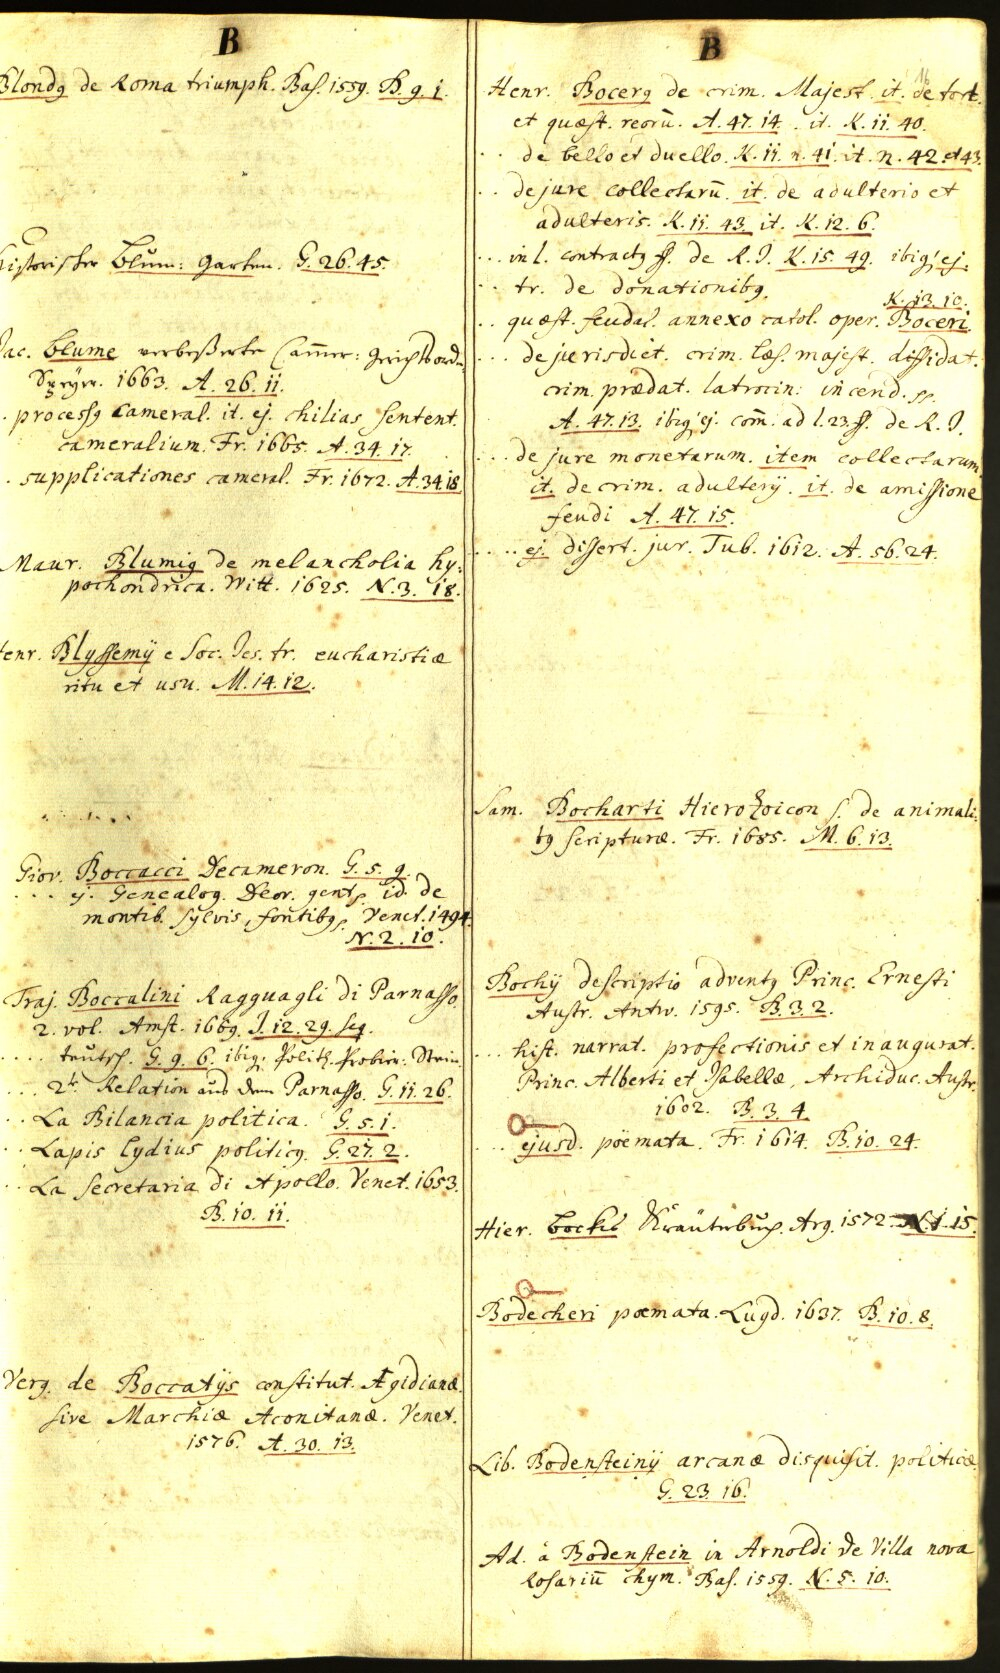 B
Blondg de Roma triumph. Bas. 1559. B. 9. 1.
Historischer Blum: Garten. G. 26. 45.
Jac. Blume verbeßerte Cam̅er: Gerichts ord.
Speyer. 1663. A. 26. 11.
. processg Cameral. it. ej. chilias sentent.
cameralium. Fr. 1665. A. 34. 17.
. supplicationes cameral. Fr. 1672. A. 34. 18
Maur. Blumig de melancholia hy:
pochondrica. Witt. 1625. N. 3. 18.
Henr. Blyssemÿ e Soc. Jes. tr. eucharistiæ
ritu et usu. M. 14. 12.
Giov. Boccacci Decameron. G. 5. 9.
... ej. Genealog. Deor. gent. id. de
montib. sylvis, fontibg. Venet. 1494.
N. 2. 10.
Traj. Boccalini Ragguagli di Parnasso.
2. vol. Amst. 1669. J. 12. 29. seq.
.... teutsch. G. 9. 6. ibig. Polit. Probier: Stein
... 2te Relation aus dem Parnasso. G. 11. 26.
.. La Bilancia politica. G. 5. 1.
.. Lapis lydius politicg. G. 27. 2.
.. La secretaria di Apollo. Venet. 1653.
B. 10. 11.
Verg. de Boccatÿs constitut. Ægidianæ.
sive Marchiæ Aconitanæ. Venet.
1576. A. 30. 13.
B
Henr. Bocerg de crim. Majest. it. de tort.
et quæst. reoru̅. A. 47. 14. it. K. 11. 40.
.. de bello et duello. K. 11. n. 41. it. n. 42. et 43.
.. de jure collectaru̅. it. de adulterio et
adulteris. K. 11. 43. it. K. 12. 6.
... in l. contractg ff. de R. J. K. 15. 49. ibig ej.
.. tr. de donationibg. K. 13. 10.
.. quæst. feudal. annexo catal. oper. Boceri
... de jurisdict. crim. læs. majest. diffidat.
crim. prædat. latrocin: incend.
A. 47. 13. ibig ej. com̅. ad l. 23. ff. de R. J.
... de jure monetarum. item collectarum
it. de crim. adulterÿ. it. de amissione
feudi A. 47. 15.
.... ej. dissert. jur. Tub. 1612. A. 56. 24.
Sam. Bocharti Hierozoicon s. de animali:
bg scripturæ. Fr. 1685. M. 6. 13.
Bochÿ descriptio adventg Princ. Ernesti
Austr. Antw. 1595. B. 3. 2.
... hist. narrat. profectionis et inaugurat.
Princ. Alberti et Isabellæ, Archiduc. Austr.
1602. B. 3. 4.
... ejusd. pöemata. Fr. 1614. B. 10. 24.
Hier. Bocks Kräuterbuch. Arg. 1572. N. 1. 15.
Bodecheri poemata. Lugd. 1637. B. 10. 8.
Lib. Bodensteinÿ arcanæ disquisit. politicæ.
G. 23. 16.
Ad. à Bodenstein in Arnoldi de Villa nova
Rosariu̅ chym. Bas. 1559. N. 5. 10.